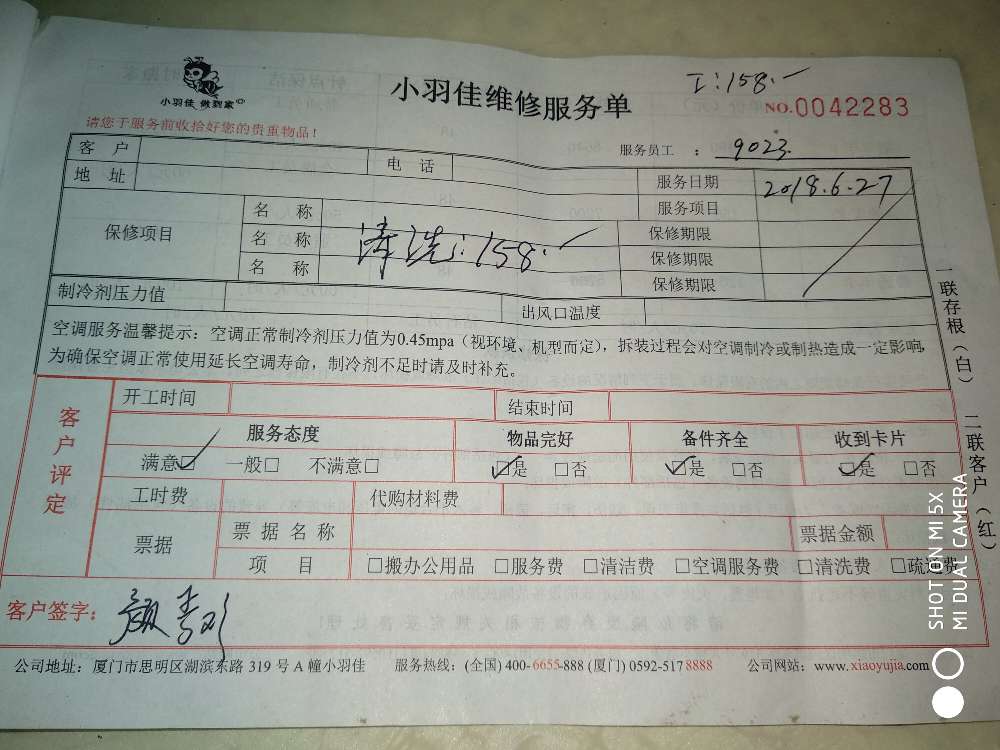 158.
小羽佳 做到家
小羽佳维修服务单
NO.0042283
请您于服务前收拾好您的贵重物品！
服务员工 ： 9023.
客 户 电 话 服务日期 2018.6.27
地 址 服务项目
保修项目 名 称 保修期限
名 称 清洗：158. 保修期限
名 称 保修期限
制冷剂压力值 出风口温度
空调服务温馨提示：空调正常制冷剂压力值为0.45mpa（视环境、机型而定），拆装过程会对空调制冷或制热造成一定影响，
为确保空调正常使用延长空调寿命，制冷剂不足时请及时补充。
一联存根（白） 二联客户（红）
客户评定
开工时间 结束时间
服务态度 物品完好 备件齐全 收到卡片
满意☑ 一般□ 不满意□ ☑是 □否 ☑是 □否 ☑是 □否
工时费 代购材料费
票据 票 据 名 称 票据金额
项 目 □搬办公用品 □服务费 □清洁费 □空调服务费 □清洗费 □疏通费
客户签字：
公司地址：厦门市思明区湖滨东路 319 号 A 幢小羽佳 服务热线：(全国) 400-6655-888 (厦门) 0592-517 8888 公司网站：www.xiaoyujia.com
SHOT ON MI 5X
MI DUAL CAMERA